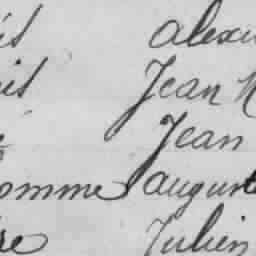 is alexi
is Jean
Jean
omme august
re Julien